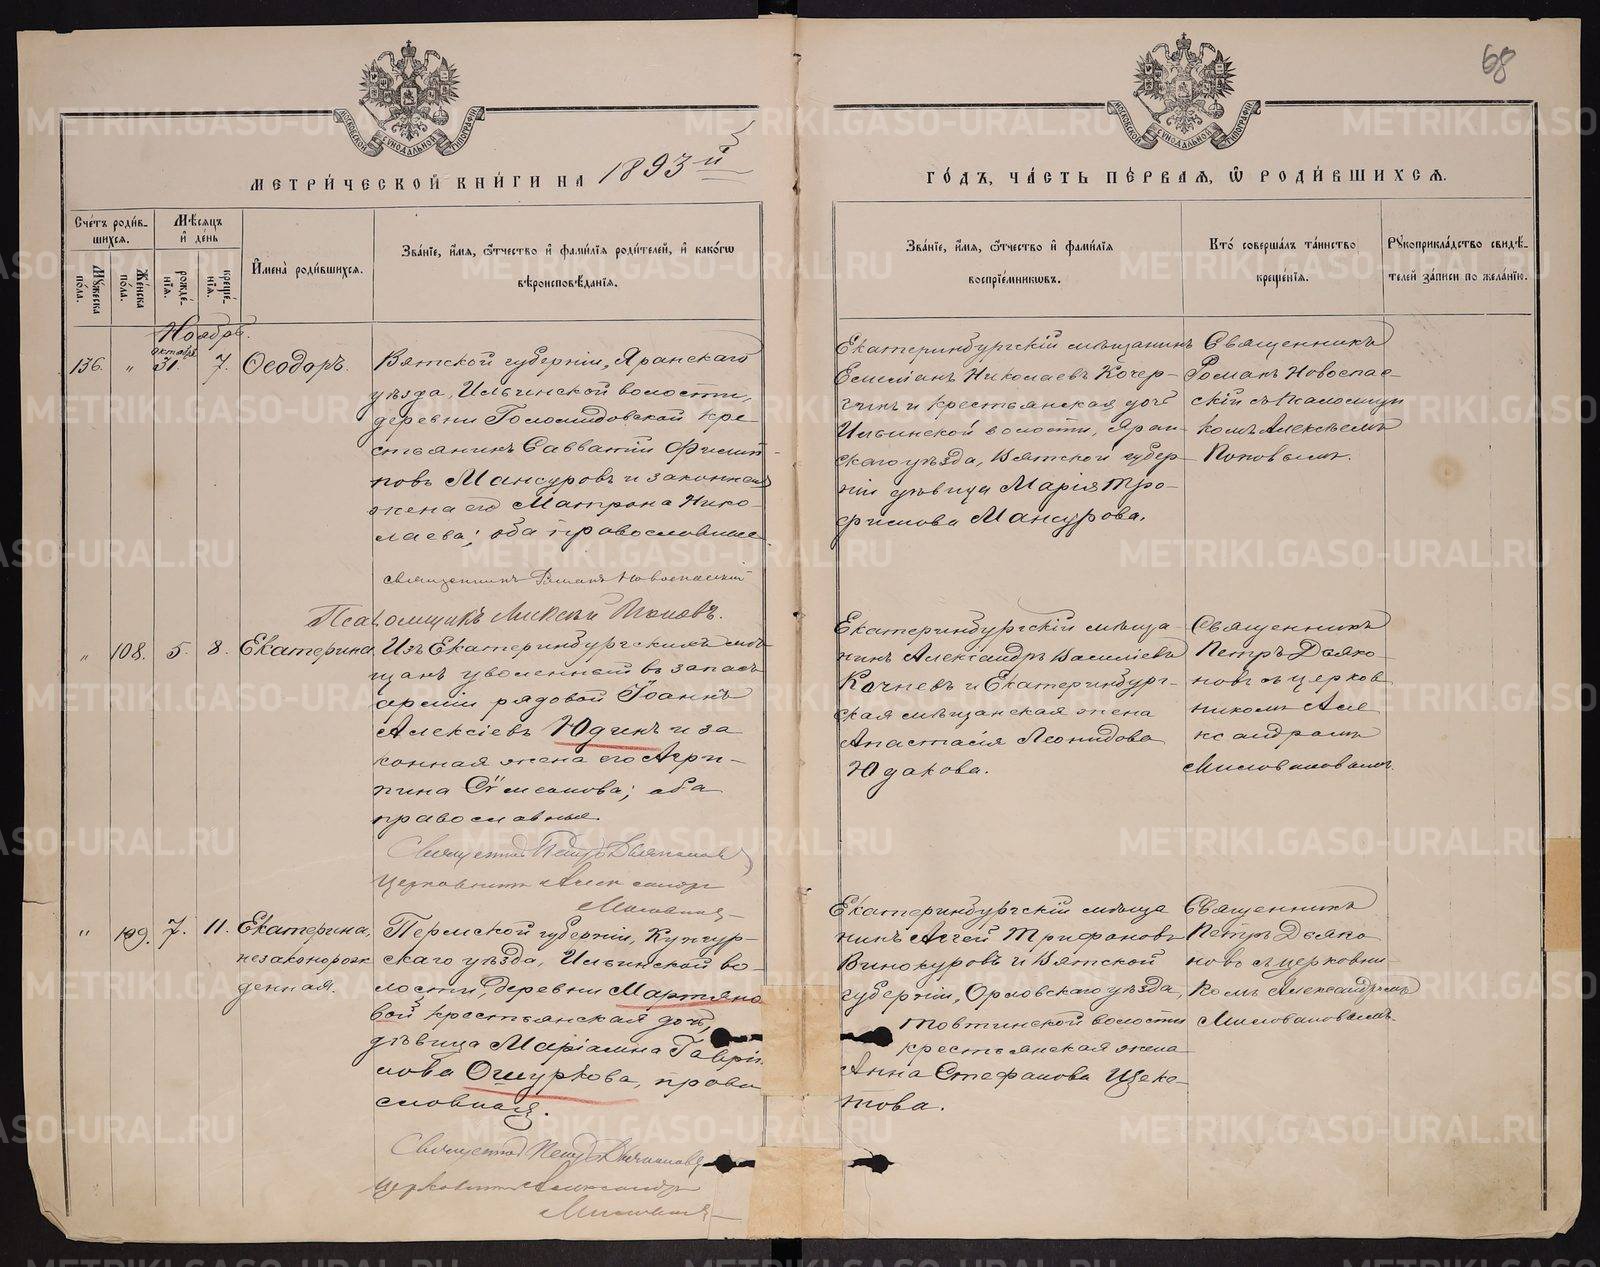 68
МОСКОВСКОЙ СѴНОДАЛЬНОЙ ТИПОГРАФІИ
МОСКОВСКОЙ СѴНОДАЛЬНОЙ ТИПОГРАФІИ
МЕТРИ́ЧЕСКОЙ КНИ́ГИ НА 1893й
ГО́ДЪ, ЧА́СТЬ ПЕ́РВАЯ, Ѡ РОДИ́ВШИХСЯ.
Сче́тъ роди́в-
шихся.
Мѣ́сяцъ
и҆ де́нь
И҆мена̀ роди́вшихся.
Зва́нїе, и҆́мя, ѻ҆́тчество и҆ фами́лїя роди́телей, и҆ како́гѡ
вѣроисповѣ́данїя.
Мꙋ́жеска
по́ла.
Же́нска
по́ла.
рожде́-
нїя.
креще́-
нїя.
Зва́нїе, и҆́мя, ѻ҆́тчество и҆ фами́лїя
воспрїе́мникѡвъ.
Кто̀ соверша́лъ та́инство
креще́нїя.
Рꙋкоприкла́дство свидѣ́-
телей за́писи по жела́нїю.
Ноябрь.
октября
136. „ 31. 7. Ѳеодоръ.
Вятской губерніи, Яранскаго
уѣзда, Ильинской волости,
деревни Голомидовской кре
стьянинъ Савватій Филип-
повъ Мансуровъ и законная
жена его Матрона Нико-
лаева; оба православные
священникъ Романъ Новоспасскій
Псаломщикъ Алексѣй Поповъ.
Екатеринбургскій мѣщанинъ
Емиліанъ Николаевъ Кочер-
гинъ и крестьянская дочь
Ильинской волости, Яран-
скаго уѣзда, Вятской губер-
ніи дѣвица Марія Тро-
фимова Мансурова.
Священникъ
Романъ Новоспас-
скій съ псаломщи
комъ Алексѣемъ
Поповымъ.
„ 108. 5. 8. Екатерина
Изъ Екатеринбургскихъ мѣ-
щанъ уволенный въ запасъ
арміи рядовой Іоаннъ
Алексіевъ Юдинъ и за
конная жена его Агрип-
пина Сѵмеонова; оба
православные.
Священникъ Петръ Дьяконовъ
Церковникъ Александръ
Миловановъ
Екатеринбургскій мѣща-
нинъ Александръ Василіевъ
Кочневъ и Екатеринбург-
ская мѣщанская жена
Анастасія Леонидова
Юдакова.
Священникъ
Петръ Дьяко-
новъ съ церков
никомъ Але
ксандромъ
Миловановымъ.
„ 109. 7. 11. Екатерина,
незаконорож
денная.
Пермской губерніи, Кунгур-
скаго уѣзда, Ильинской во-
лости, деревни Мартяно
вой крестьянская дочь,
дѣвица Маріамна Гаврі
лова Ошуркова, право
славная.
Священникъ Петръ Дьяконовъ
Церковникъ Александръ
Миловановъ
Екатеринбургскій мѣща
нинъ Аггей Трифоновъ
Винокуровъ и Вятской
губерніи, Орловскаго уѣзда,
Товтинской волости
крестьянская жена
Анна Стефанова Щеко-
това.
Священникъ
Петръ Дьяко
новъ съ церковни-
комъ Александромъ
Миловановымъ.
METRIKI.GASO-URAL.RU